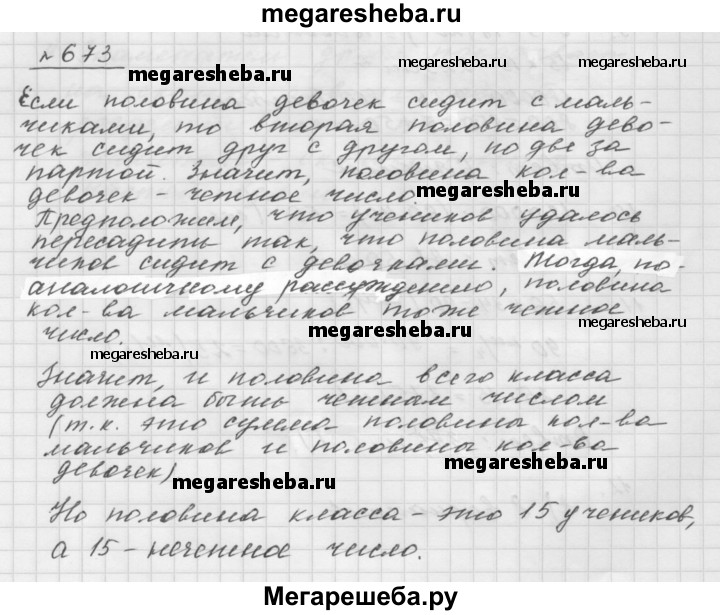 megaresheba.ru
№ 673
megaresheba.ru
megaresheba.ru
Если половина девочек сидит с маль-
чиками, то вторая половина дево-
чек сидит друг с другом, по две за
партой. Значит, половина кол-ва
девочек - четное число.
megaresheba.ru
Предположим, что учеников удалось
пересадить так, что половина маль-
чиков сидит с девочками. Тогда, по
аналогичному рассуждению, половина
кол-ва мальчиков тоже четное
число.
megaresheba.ru
megaresheba.ru
Значит, и половина всего класса
должна быть четным числом
(т.к. это сумма половины кол-ва
мальчиков и половины кол-ва
девочек)
megaresheba.ru
megaresheba.ru
Но половина класса - это 15 учеников,
а 15 - нечетное число.
Мегарешеба.ру